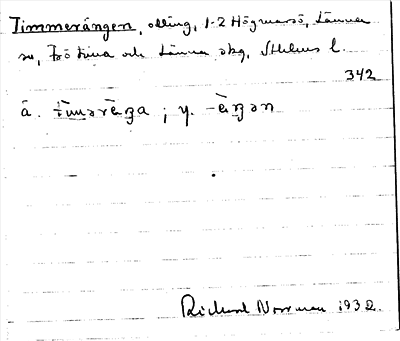 Timmerängen, odling, 1-2 Högmarsö, Länna
sn, Frötuna och Länna skg, Sthlms l.
342
ä.                ; y.
Richard Norrman 1932.